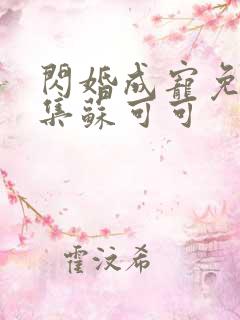 閃婚成寵免
集蘇可可
霍汶希